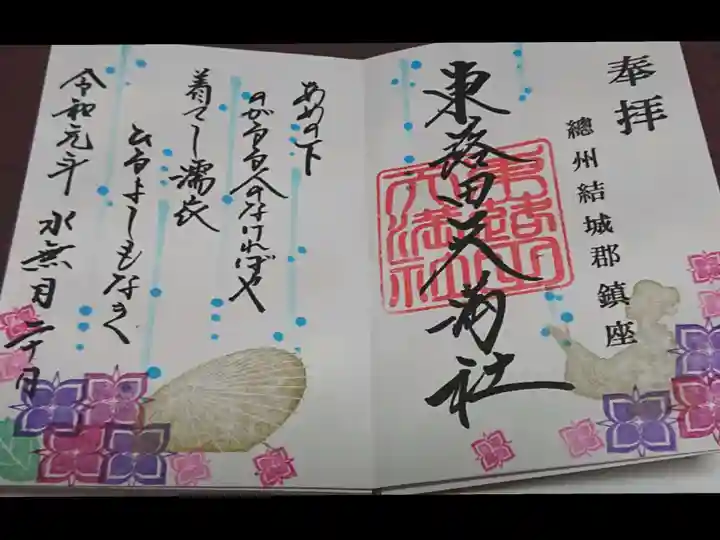 奉拝
總州結城郡鎮座
東蕗田天満社
東蕗田天満社
あめの下
のがるる人のなければや
着てし濡衣
ひるよしもなき
令和元年 水無月二十日